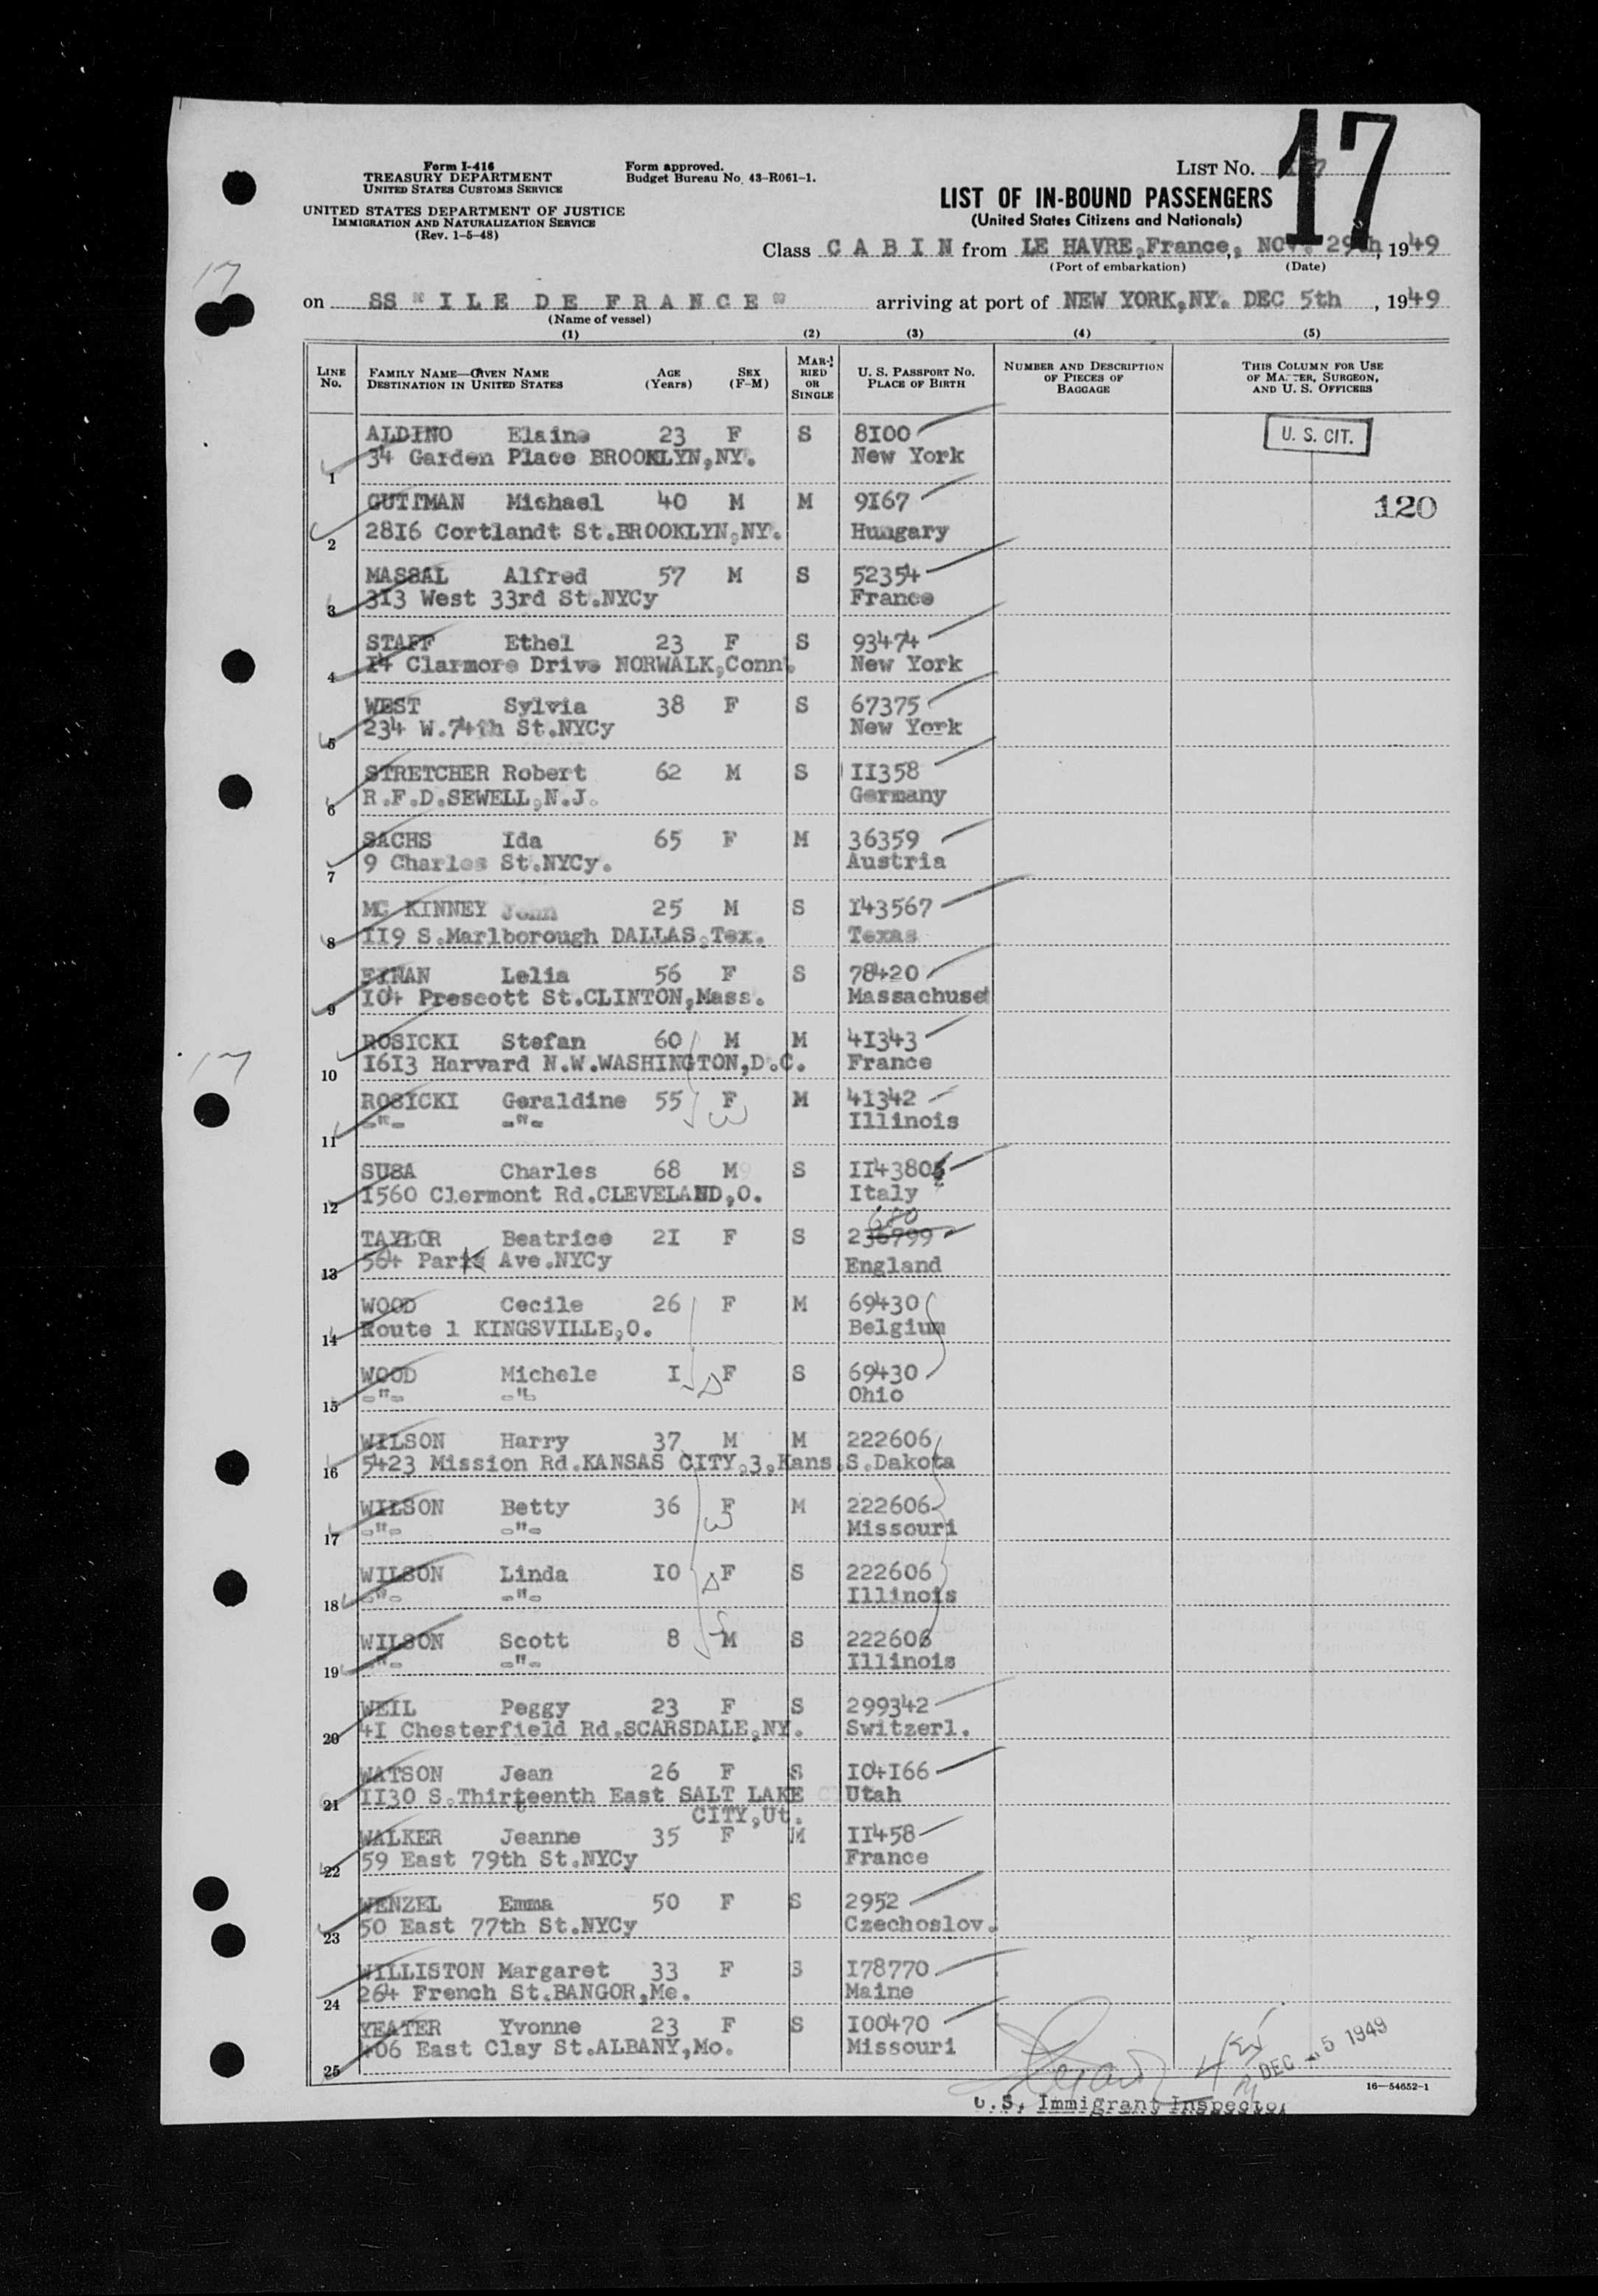 17
Form I-416
TREASURY DEPARTMENT
UNITED STATES CUSTOMS SERVICE
UNITED STATES DEPARTMENT OF JUSTICE
IMMIGRATION AND NATURALIZATION SERVICE
(Rev. 1-5-48)
Form approved.
Budget Bureau No. 43-R061-1.
LIST NO. 17
LIST OF IN-BOUND PASSENGERS
(United States Citizens and Nationals)
Class C A B I N from LE HAVRE,France, NOV. 29th, 1949
(Port of embarkation) (Date)
17
on SS " I L E D E F R A N C E " arriving at port of NEW YORK,NY. DEC 5th , 1949
(Name of vessel)
(1) (2) (3) (4) (5)
LINE No. FAMILY NAME—GIVEN NAME DESTINATION IN UNITED STATES AGE (Years) SEX (F-M) MARRIED OR SINGLE U. S. PASSPORT NO. PLACE OF BIRTH NUMBER AND DESCRIPTION OF PIECES OF BAGGAGE THIS COLUMN FOR USE OF MASTER, SURGEON, AND U. S. OFFICERS
ALDINO Elaine 23 F S 8I00 U. S. CIT.
1 34 Garden Place BROOKLYN,NY. New York
GUTTMAN Michael 40 M M 9I67 120
2 28I6 Cortlandt St.BROOKLYN,NY. Hungary
MASSAL Alfred 57 M S 52354
3 3I3 West 33rd St.NYCy France
STAFF Ethel 23 F S 93474
4 I4 Clarmore Drive NORWALK,Conn. New York
WEST Sylvia 38 F S 67375
5 234 W.74th St.NYCy New York
STRETCHER Robert 62 M S II358
6 R.F.D.SEWELL,N.J. Germany
SACHS Ida 65 F M 36359
7 9 Charles St.NYCy. Austria
MC KINNEY John 25 M S I43567
8 II9 S.Marlborough DALLAS,Tex. Texas
FINAN Lelia 56 F S 78420
9 I04 Prescott St.CLINTON,Mass. Massachuset
ROSICKI Stefan 60 M M 4I343
10 I6I3 Harvard N.W.WASHINGTON,D.C. France
17
ROSICKI Geraldine 55 F M 4I342
W
11 -"- -"- Illinois
SUSA Charles 68 M S II4380
12 I560 Clermont Rd.CLEVELAND,O. Italy
680
TAYLOR Beatrice 2I F S 236799
13 564 Park Ave.NYCy England
WOOD Cecile 26 F M 69430
14 Route 1 KINGSVILLE,O. Belgium
WOOD Michele I D F S 69430
15 -"- -"- Ohio
WILSON Harry 37 M M 222606
16 5423 Mission Rd.KANSAS CITY,3,Kans. S.Dakota
WILSON Betty 36 F M 222606
W
17 -"- -"- Missouri
WILSON Linda IO D F S 222606
18 -"- -"- Illinois
WILSON Scott 8 S M S 222606
19 -"- -"- Illinois
WEIL Peggy 23 F S 299342
20 4I Chesterfield Rd.SCARSDALE,NY. Switzerl.
WATSON Jean 26 F S I04I66
21 II30 S.Thirteenth East SALT LAKE Utah
CITY,Ut.
WALKER Jeanne 35 F M II458
22 59 East 79th St.NYCy France
WENZEL Emma 50 F S 2952
23 50 East 77th St.NYCy Czechoslov.
WILLISTON Margaret 33 F S I78770
24 264 French St.BANGOR,Me. Maine
YEATER Yvonne 23 F S I00470
25 406 East Clay St.ALBANY,Mo. Missouri
DEC 5 1949
16—54652-1
U.S. Immigrant Inspector